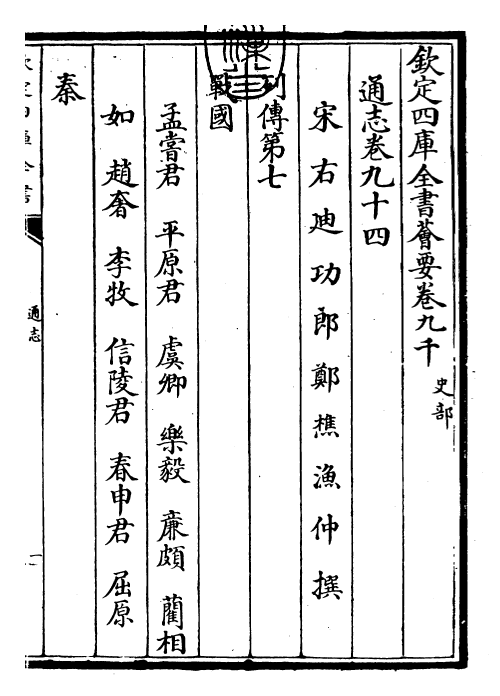 欽定四庫全書薈要卷九千 史部
通志卷九十四
宋右迪功郎鄭樵漁仲撰
列傳第七
戰國
孟嘗君 平原君 虞卿 樂毅 廉頗 藺相
如 趙奢 李牧 信陵君 春申君 屈原
秦
通志